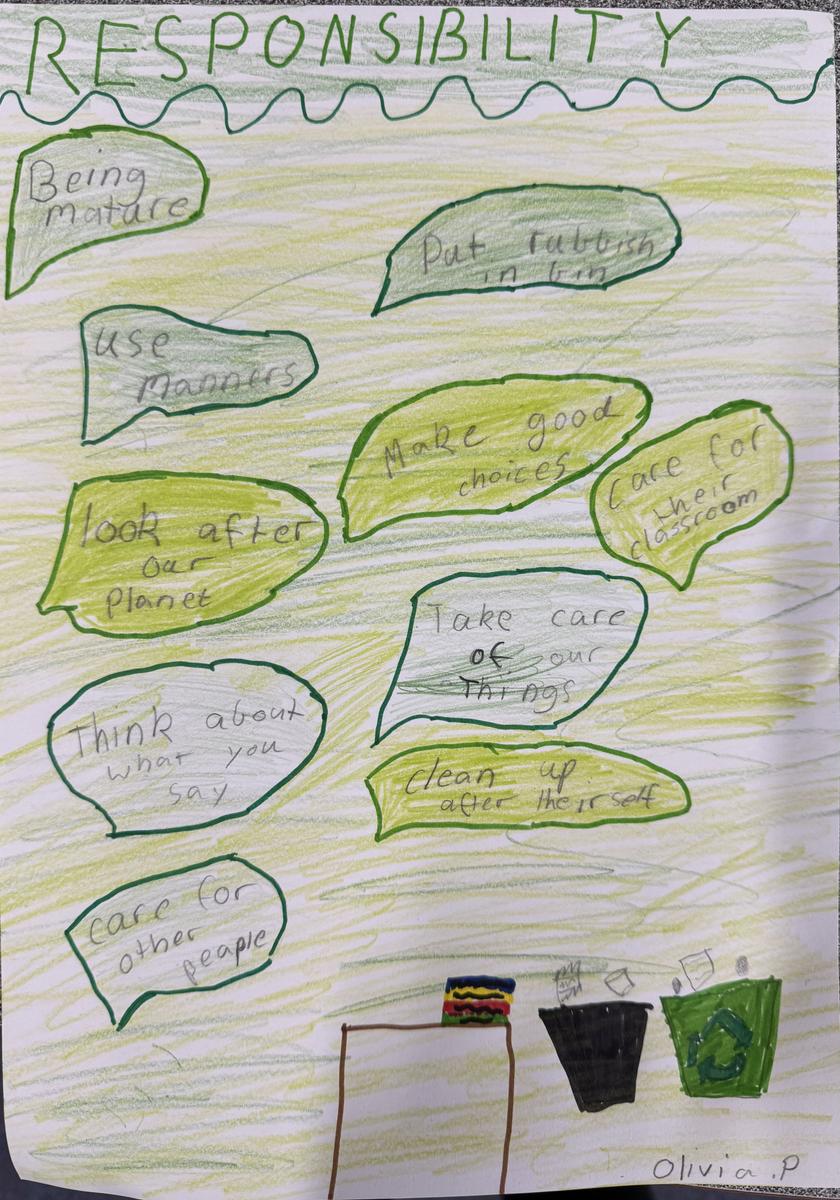 RESPONSIBILITY
Being
mature
Put rubbish
in bin
use
manners
Make good
choices
Care for
their
classroom
look after
our
Planet
Take care
of our
Things
Think about
what you
say
clean up
after theirself
care for
other
peaple
Olivia .P